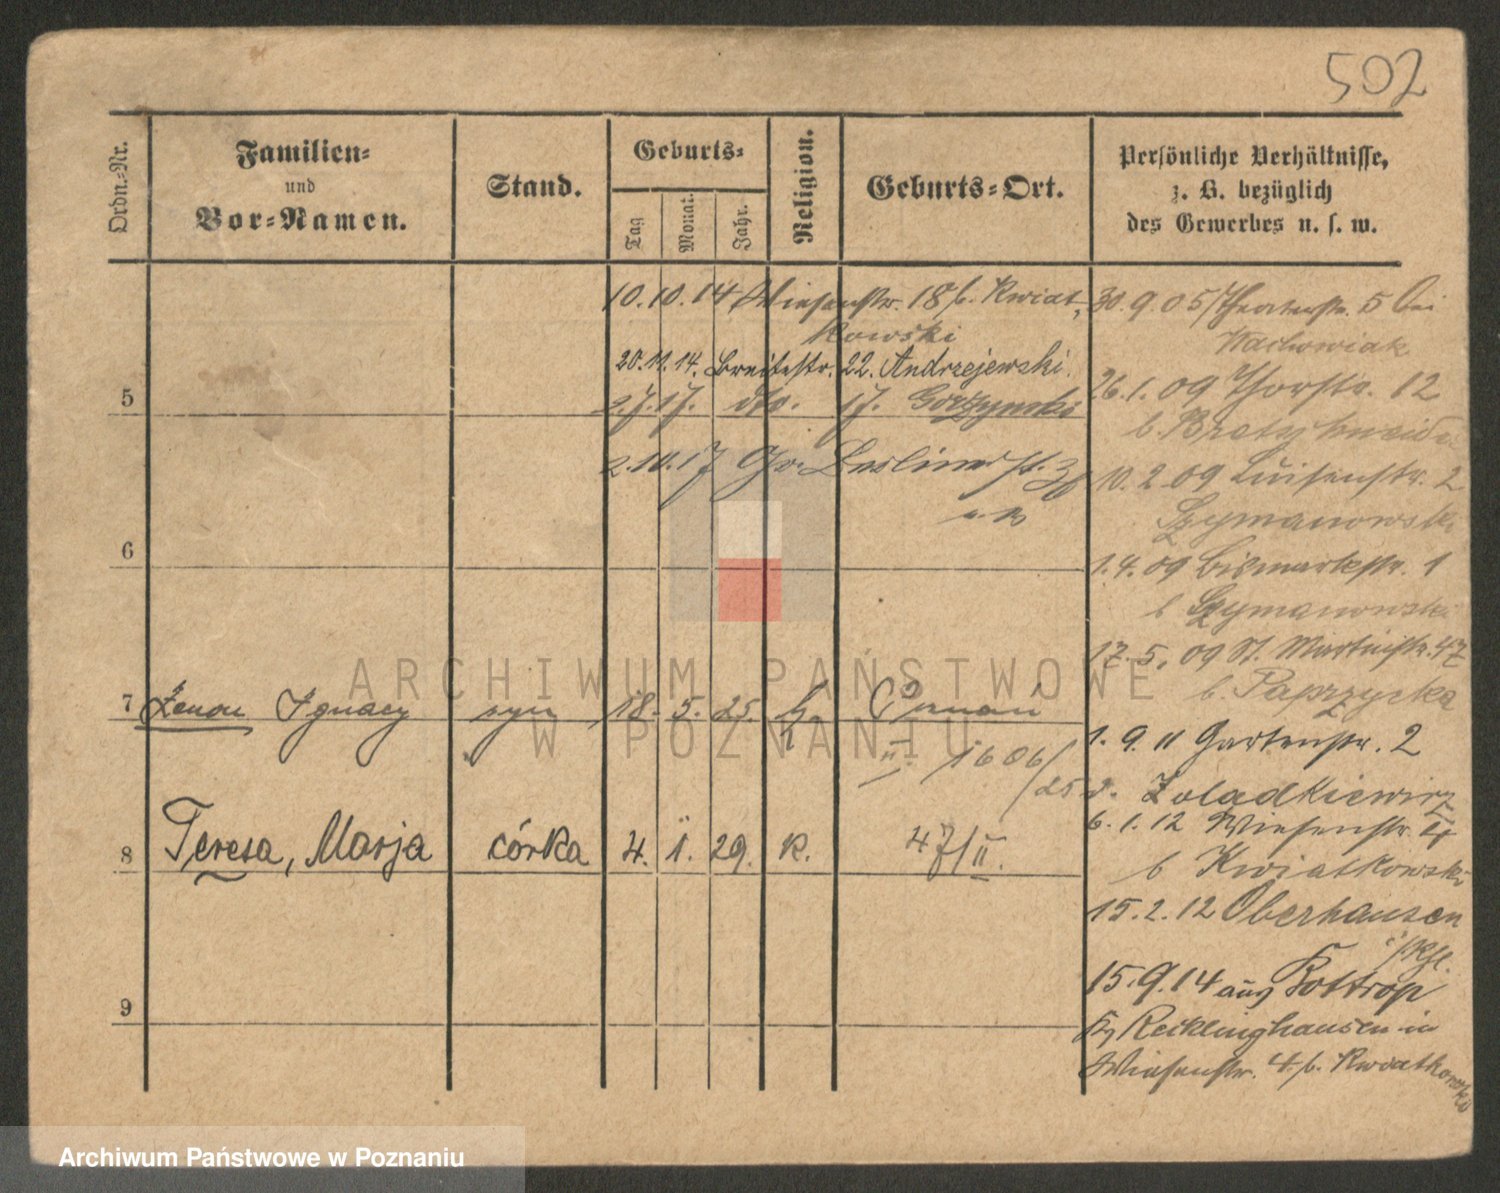 502
Ordn.-Nr.
Familien-
und
Vor-Namen.
Stand.
Geburts-
Tag
Monat.
Jahr.
Religion.
Geburts-Ort.
Persönliche Verhältnisse,
z. B. bezüglich
des Gewerbes u. s. w.
10.10.14 Wiesenstr. 18 b. Kwiat-
kowski
20.11.14. Breitestr. 22. Andrzejewski.
5
2.7.17. dto. 17. Gorzynski
2.10.17 Gr. Berliner st.
6
7 Zenon Ignacy syn 18. 5. 25. k Poznań
II. 1606/
25
8 Teresa, Marja córka 4. 1. 29. k. 47/II.
9
30.9.05 Theaterstr. 5 bei
Wachowiak
26.1.09 Thorstr. 12
b. Bretschneider
10.2.09 Luisenstr. 2
Szymanowski
1.4.09 Bismarkstr. 1
b Szymanowski
17.5.09 St. Martinstr. 47
b. Paprzycka
1.9.11 Gartenstr. 2
Zoladkiewicz
6.1.12 Wiesenstr. 4
b Kwiatkowski
15.2.12 Oberhausen
15.9.14 aus Bottrop
Recklinghausen in
Wiesenstr. 4 b. Kwiatkowski
ARCHIWUM PAŃSTWOWE
W POZNANIU
Archiwum Państwowe w Poznaniu